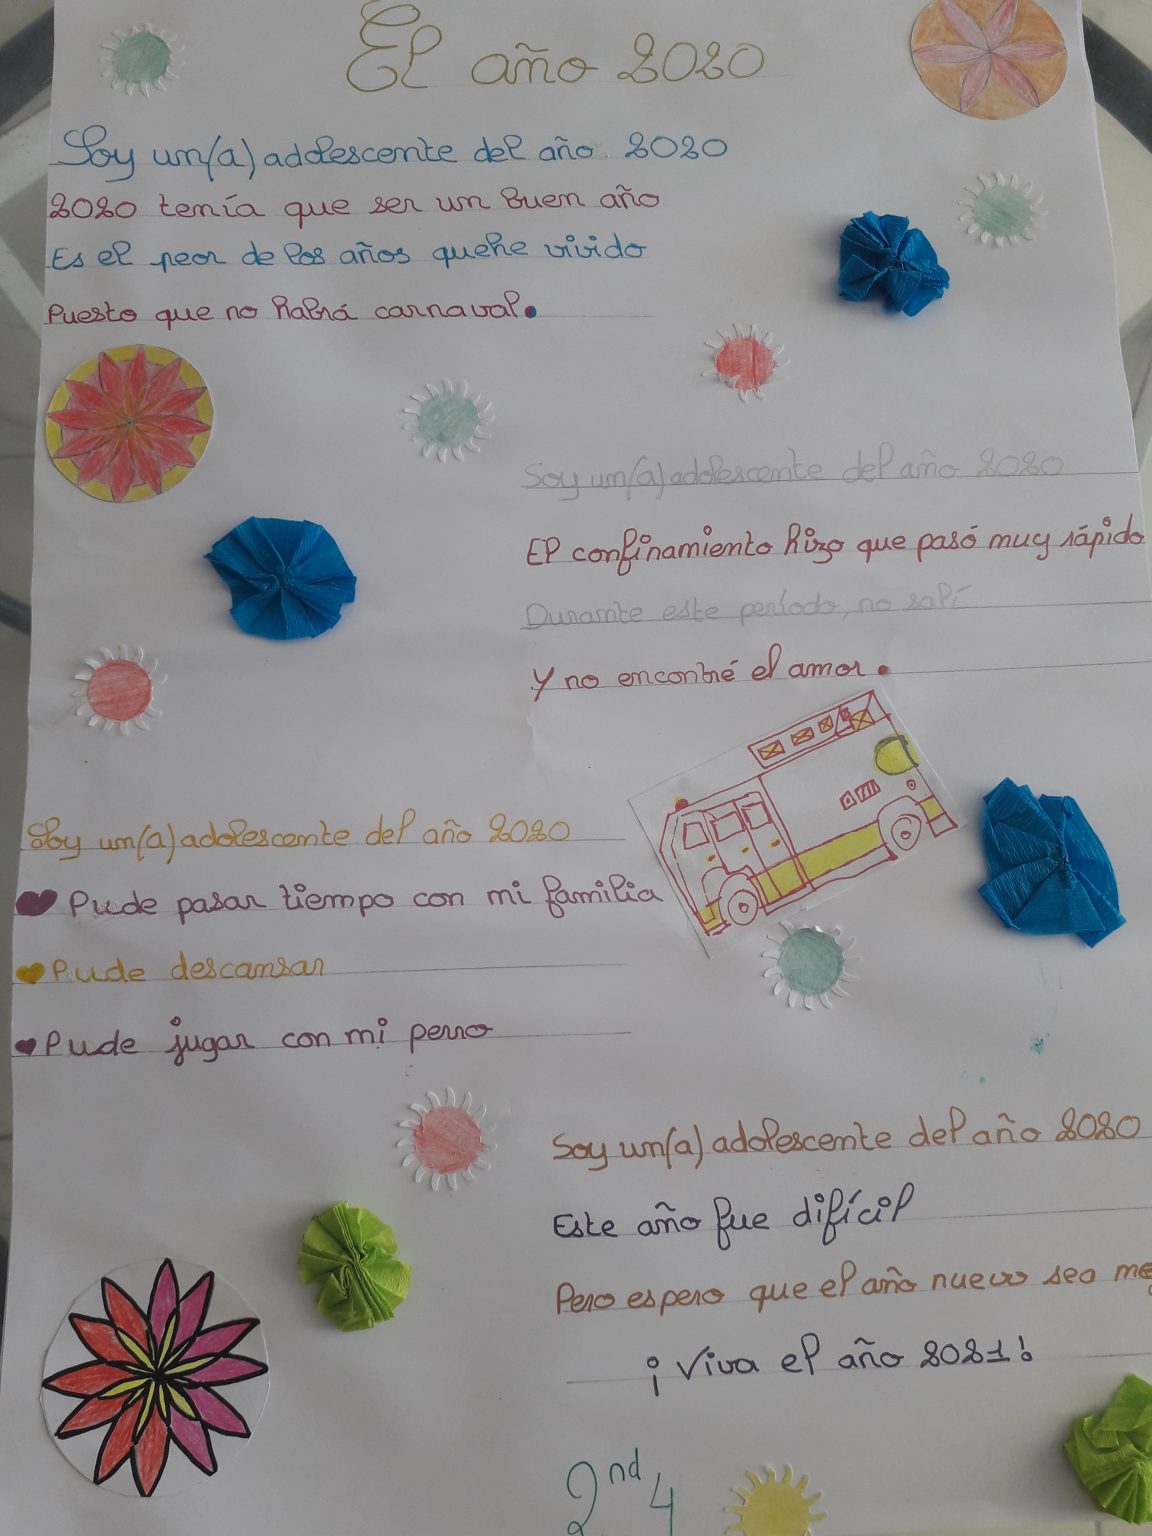 El año 2020
Soy un(a) adolescente del año 2020
2020 tenía que ser un buen año
Es el peor de los años quehe vivido
Puesto que no habrá carnaval.
Soy un(a) adolescente del año 2020
El confinamiento hizo que pasó muy rápido
Durante este período, no salí
Y no encontré el amor.
Soy un(a) adolescente del año 2020
Pude pasar tiempo con mi familia
Pude descansar
Pude jugar con mi perro
Soy un(a) adolescente del año 2020
Este año fue difícil
Pero espero que el año nuevo sea
¡Viva el año 2021!
2nd 4